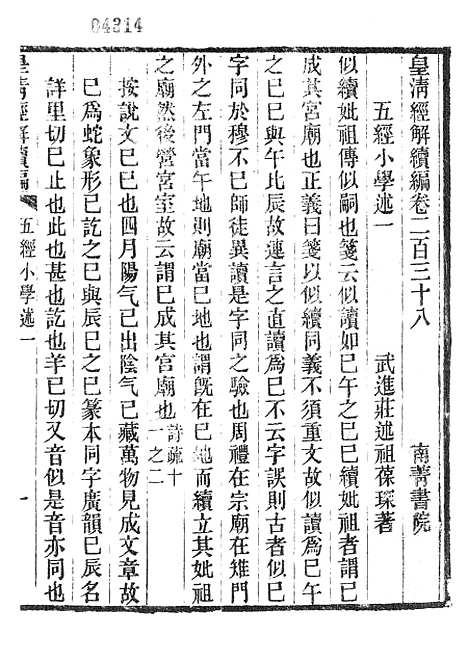 04314
皇清經解續編卷二百三十八 南菁書院
五經小學述一 武進莊述祖葆琛著
似續妣祖傳似嗣也箋云似讀如巳午之巳巳續妣祖者謂已
成其宮廟也正義曰箋以似續同義不須重文故似讀爲巳午
之巳巳與午比辰故連言之直讀爲巳不云字誤則古者似巳
字同於穆不已師徒異讀是字同之驗也周禮在宗廟在雉門
外之左門當午地則廟當巳地也謂旣在巳地而續立其妣祖
之廟然後營宮室故云謂已成其宮廟也詩疏十一之二
按說文巳已也四月陽气已出陰气已藏萬物見成文章故
巳爲蛇象形已訖之已與辰巳之巳篆本同字廣韻巳辰名
詳里切已止也此也甚也訖也羊已切又音似是音亦同也
皇清經解續編 五經小學述一 一